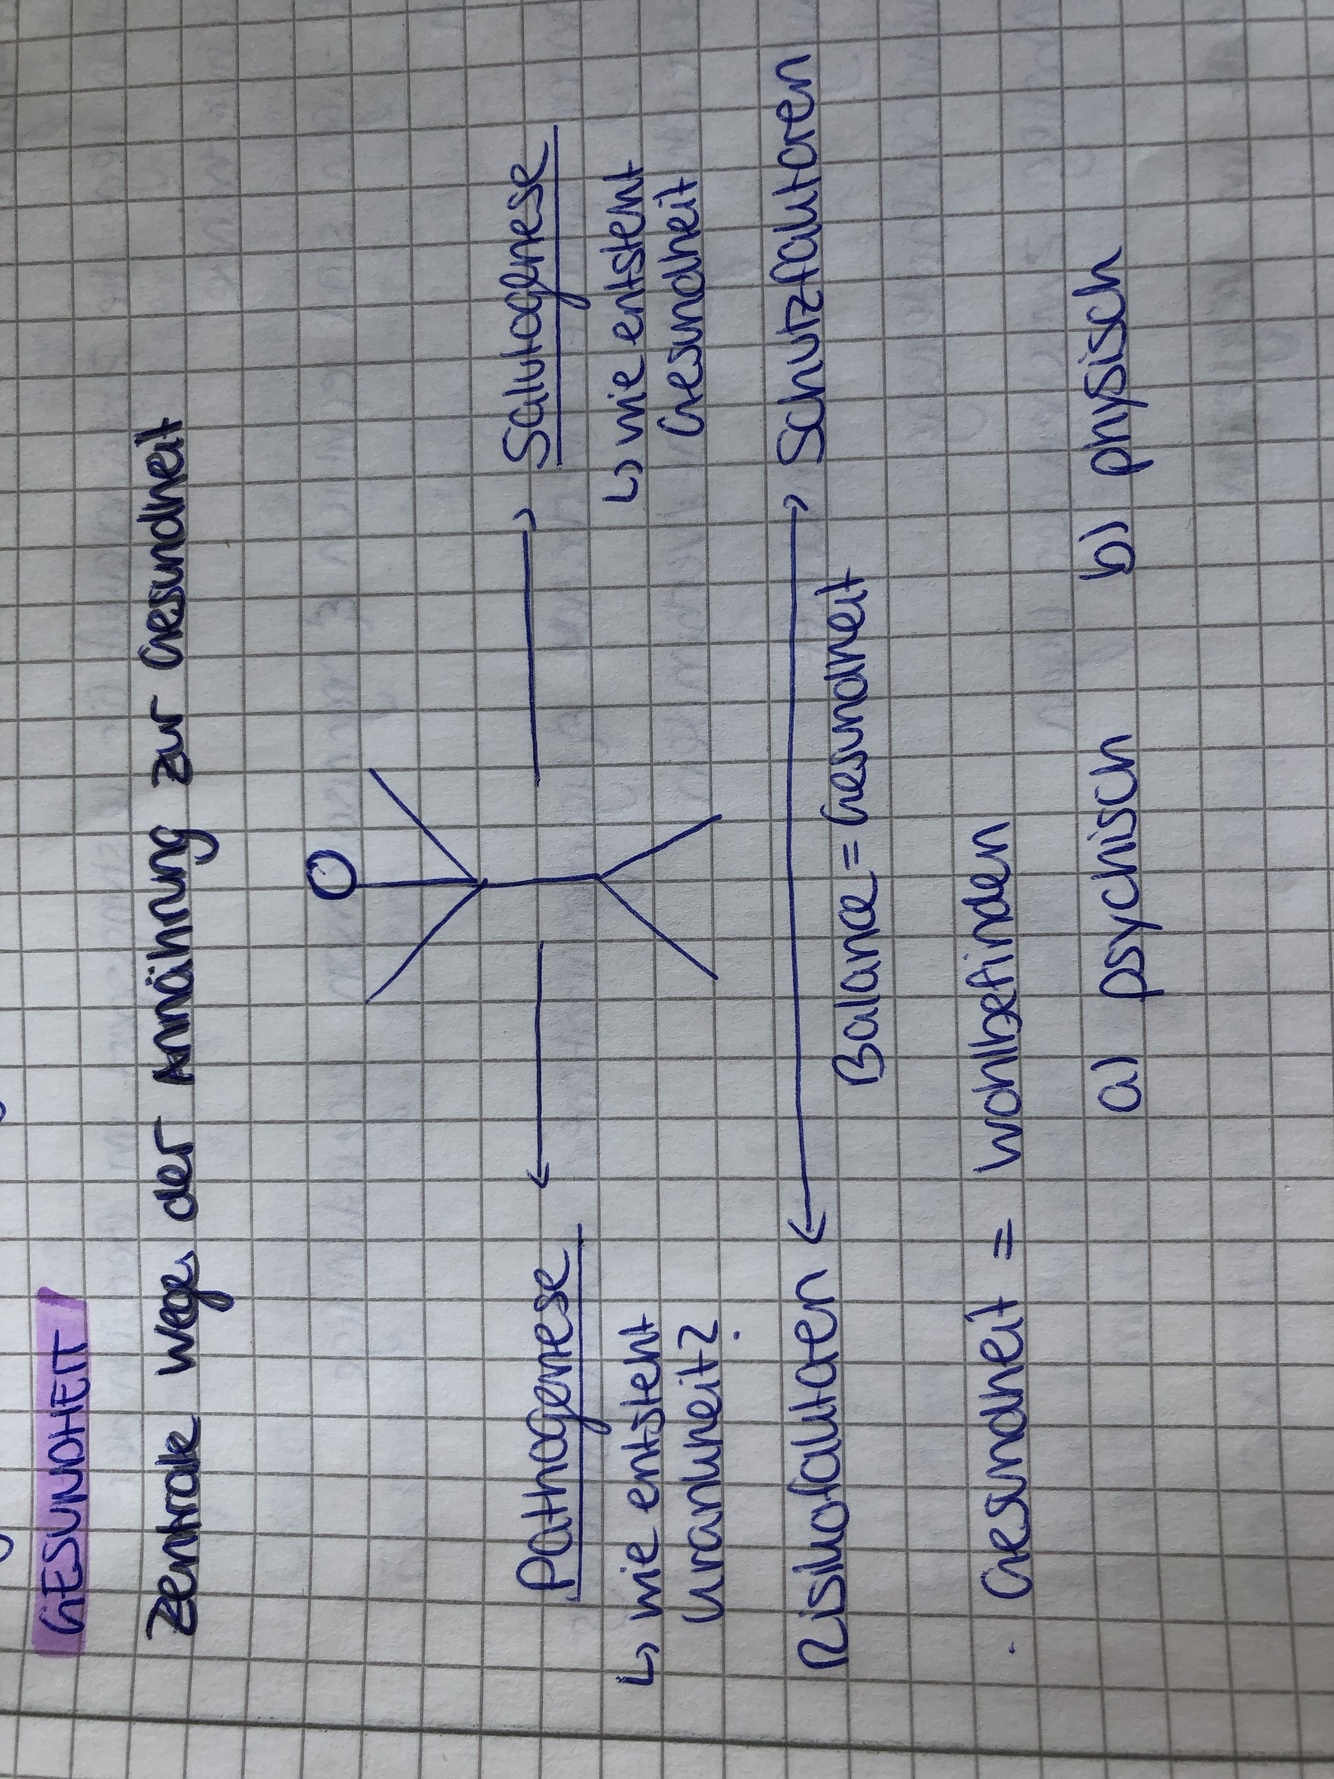 GESUNDHEIT
Zentrale Wege der Annährung zur Gesundheit
Pathogenese
↳ wie entsteht
Krankheit?
Salutogenese
↳ wie entsteht
Gesundheit
Risikofaktoren
Schutzfaktoren
Balance = Gesundheit
· Gesundheit = wohlbefinden
a) psychisch b) physisch